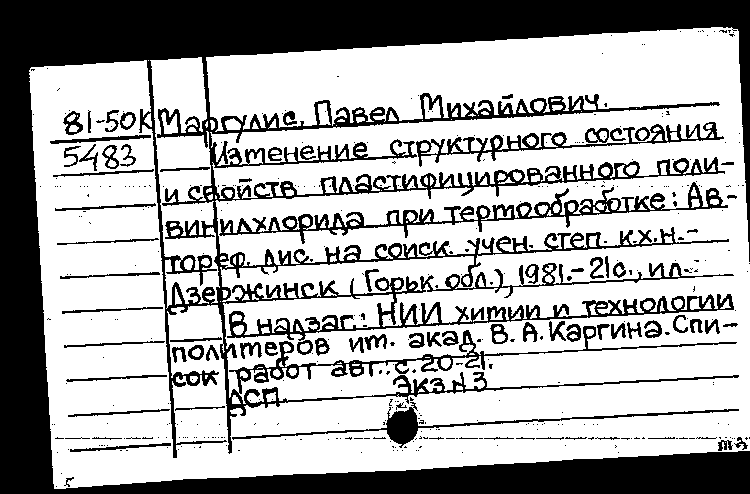 81-50К Маргулис, Павел Михайлович.
5483 Изменение структурного состояния
и свойств пластифицированного поли-
винилхлорида при термообработке: Ав-
тореф. дис. на соиск. учен. степ. к.х.н.-
Дзержинск (Горьк. обл.), 1981.-21с., ил.
В надзаг.: НИИ химии и технологии
полимеров им. акад. В.А.Каргина. Спи-
сок работ авт.: с.20-21.
ДСП. Экз.№3